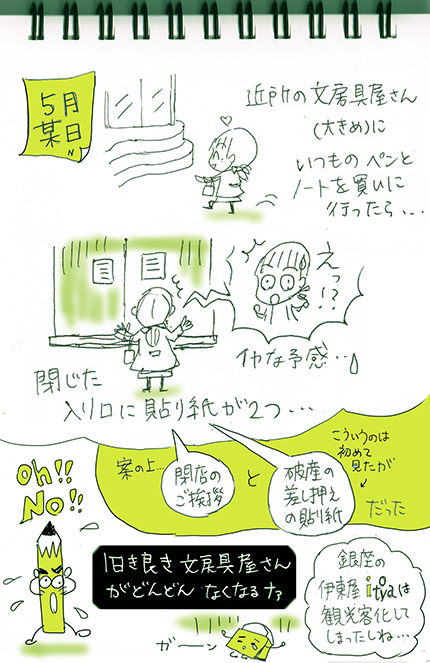 5月
某日
近所の文房具屋さん
(大きめ)に
いつものペンと
ノートを買いに
行ったら...
えっ!?
イヤな予感...
閉じた
入り口に貼り紙が2つ...
案の上...
閉店の
ご挨拶
と
破産の
差し押え
の貼り紙
だった
こういうのは
初めて
見たが
Oh!!
No!!
旧き良き文房具屋さん
がどんどんなくなるナァ
ガーン
銀座の
伊東屋itoyaは
観光客化して
しまったしね...